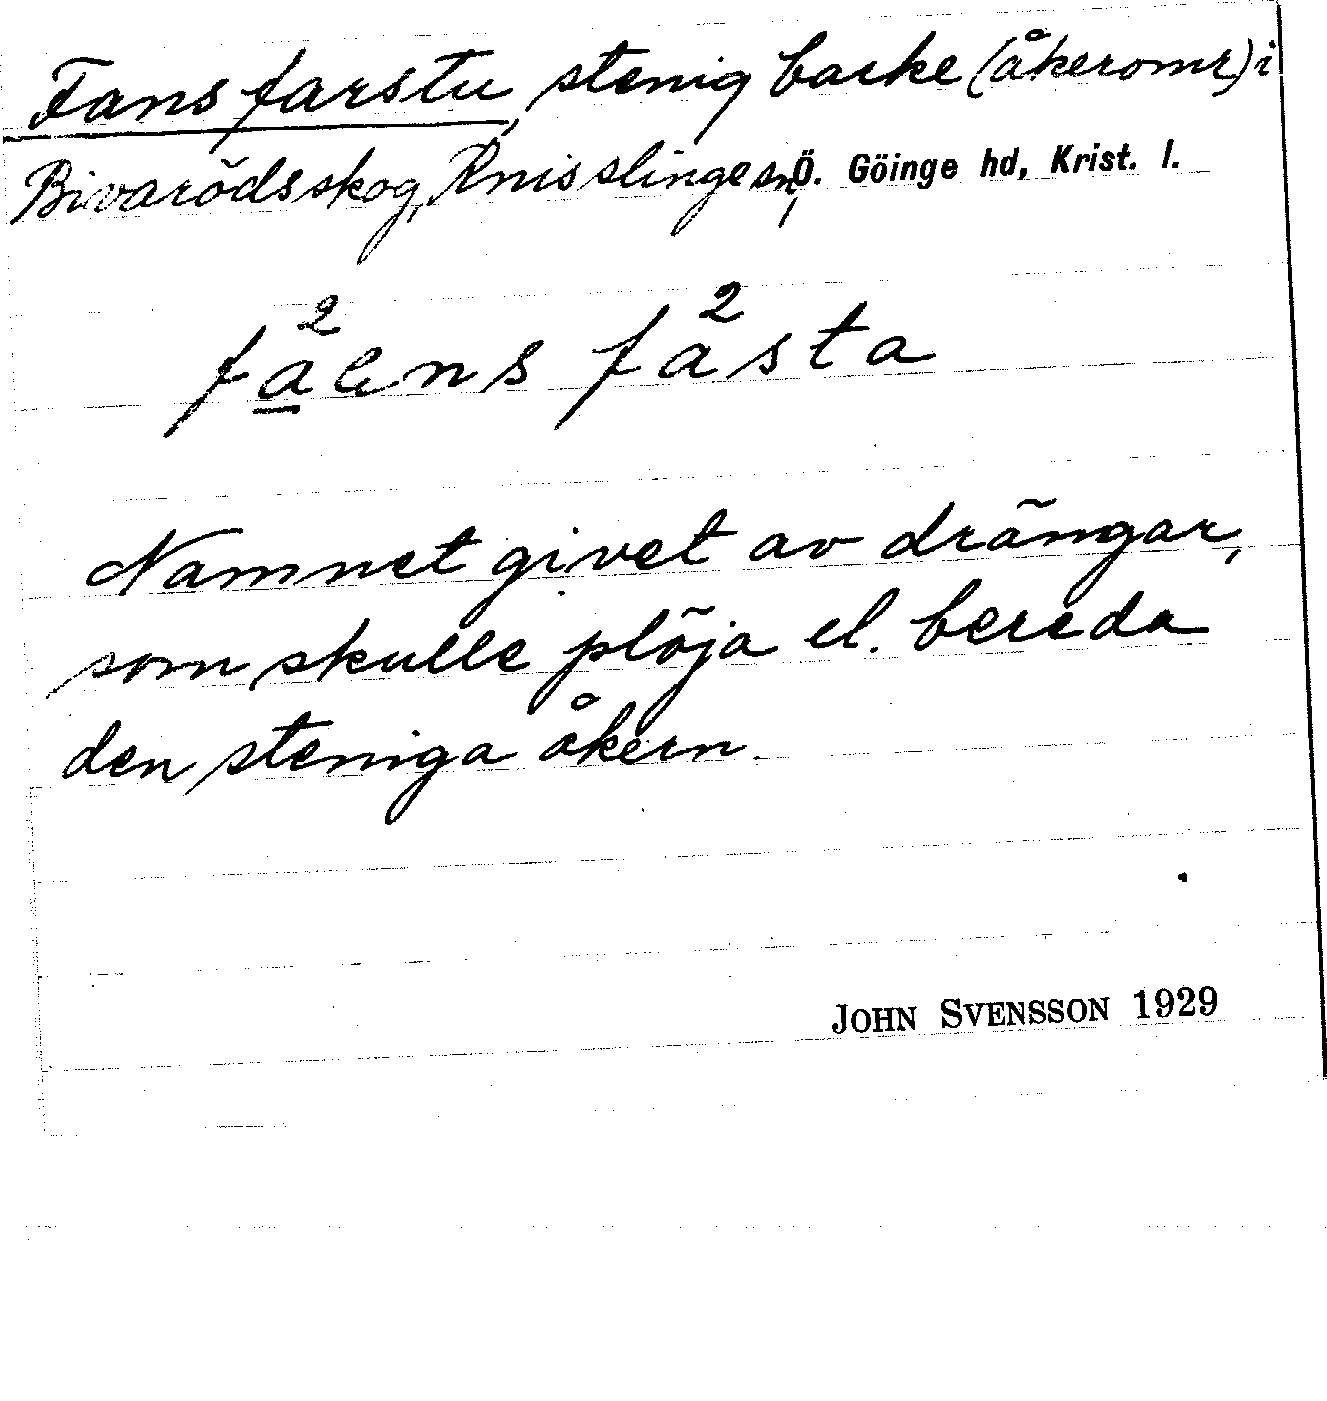 Fans farstu, stenig backe (åkeromr) i
Bivarödsskog, Knisslinge sn, Ö. Göinge hd, Krist. l.
fa²ens fa²sta
Namnet givet av drängar,
som skulle plöja el. bereda
den steniga åkern.
JOHN SVENSSON 1929